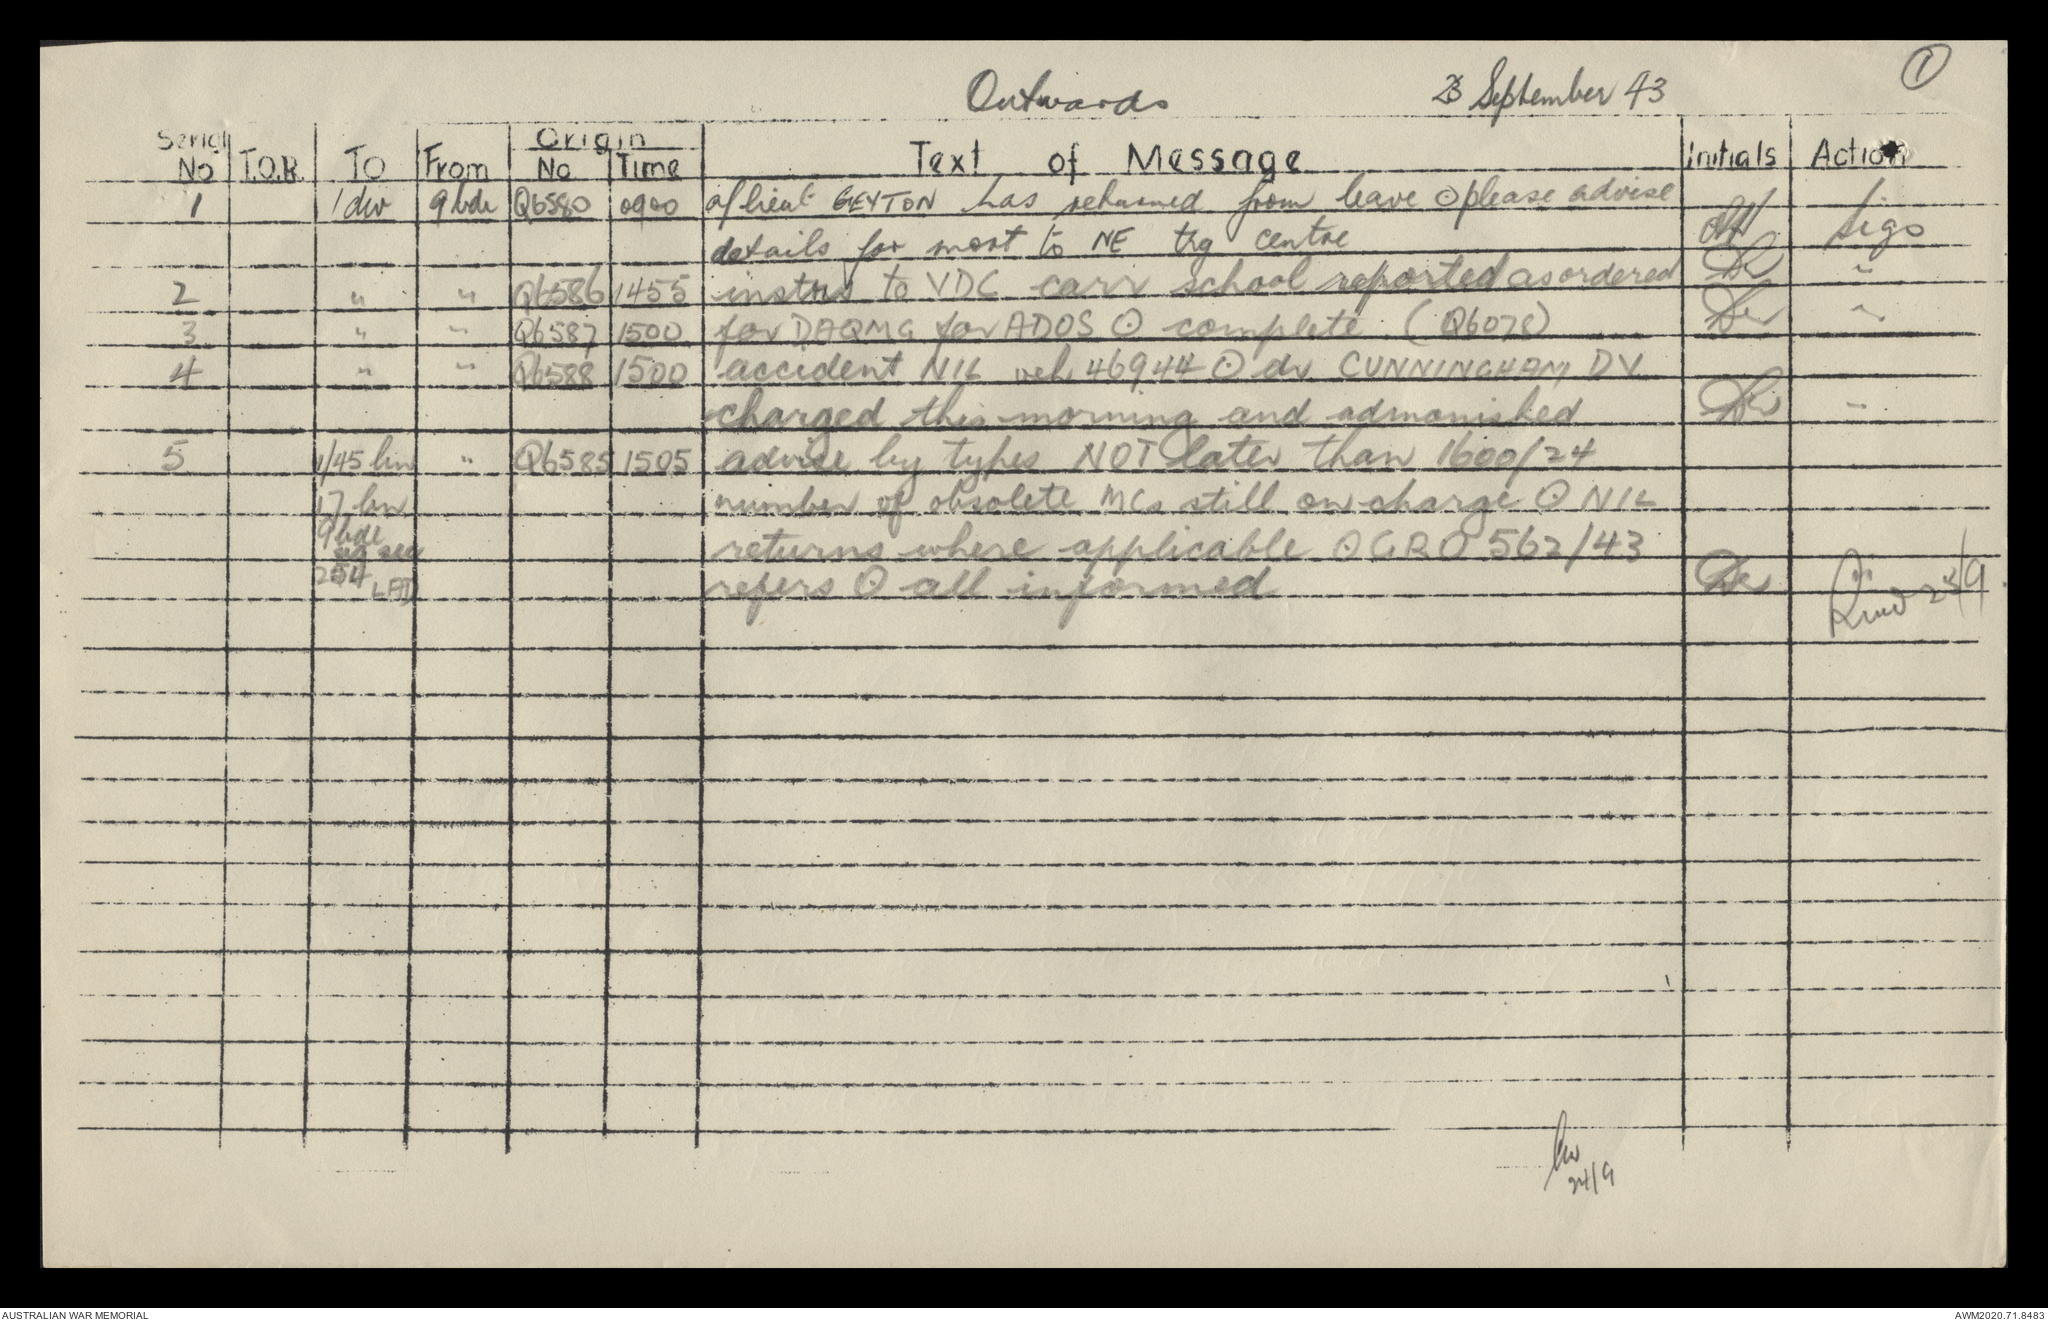 ①
Outwards 23 September 43
Serial No T.O.R. TO From Origin No Time Text of Message Initials Action
1 1 div 9 bde Q6580 0900 GEYTON has returned from leave ⊙ please advise
details for movt to NE trg centre Sigs
2 " " Q6586 1455 instrs to VDC carr school reported as ordered "
3 " " Q6587 1500 for DAQMG for ADOS ⊙ complete (Q6078) "
4 " " Q6588 1500 accident NIL veh 46944 ⊙ dv CUNNINGHAM DV
charged this morning and admonished "
5 1/45 bn " Q6585 1505 advise by types NOT later than 1600/24
17 bn number of obsolete MCs still on charge ⊙ NIL
9 bde sig sec returns where applicable ⊙ GRO 562/43
254 LAD refers ⊙ all informed 23/9
24/9
AUSTRALIAN WAR MEMORIAL AWM2020.71.8483